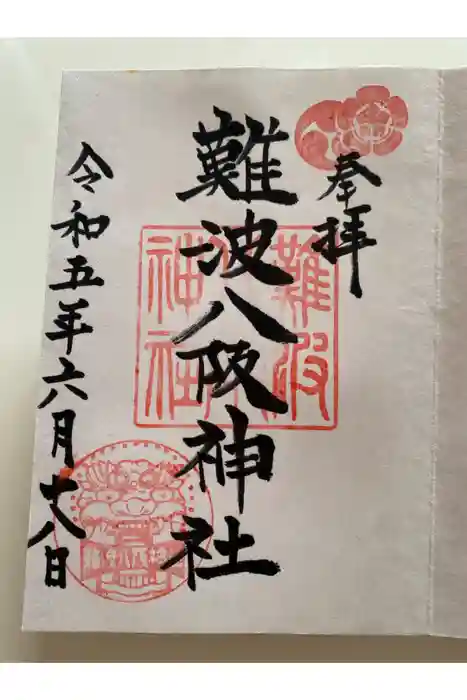 奉拝
難波八阪神社
令和五年六月十八日
難波八阪神社